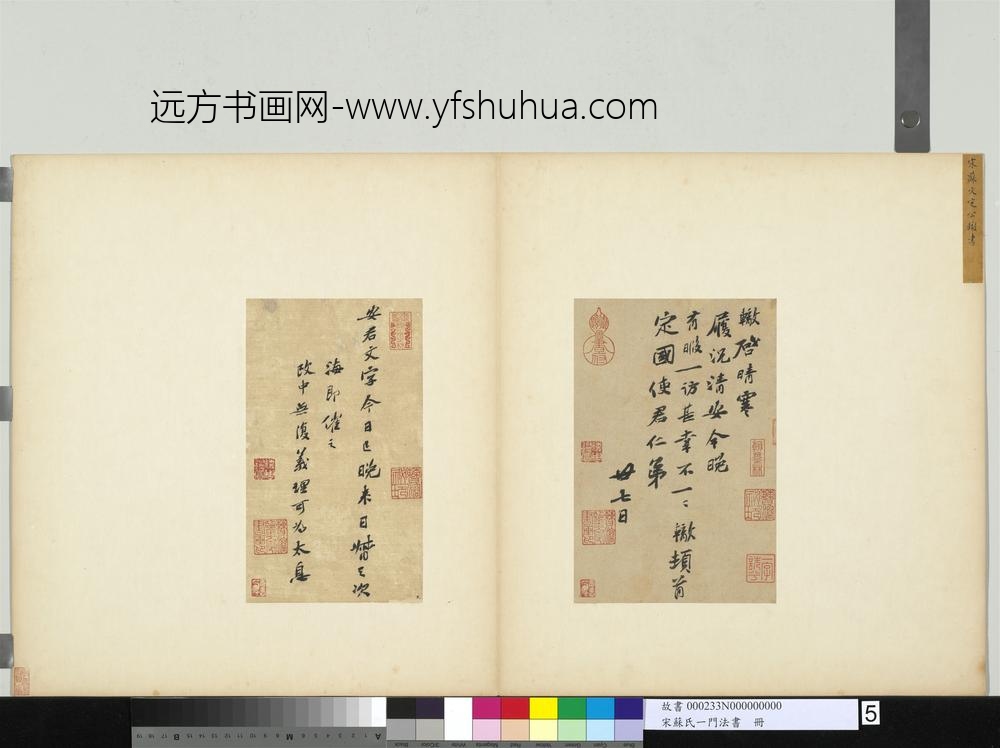 远方书画网-www.yfshuhua.com
宋蘇文定公轍書
轍啓晴寒
履況清安今晚
有暇一訪甚幸不一〻轍頓首
定國使君仁弟
廿七日
安君文字今日已晚來日
海即催之
政中無復義理可為太息
故書 000233N000000000
宋蘇氏一門法書 冊
5